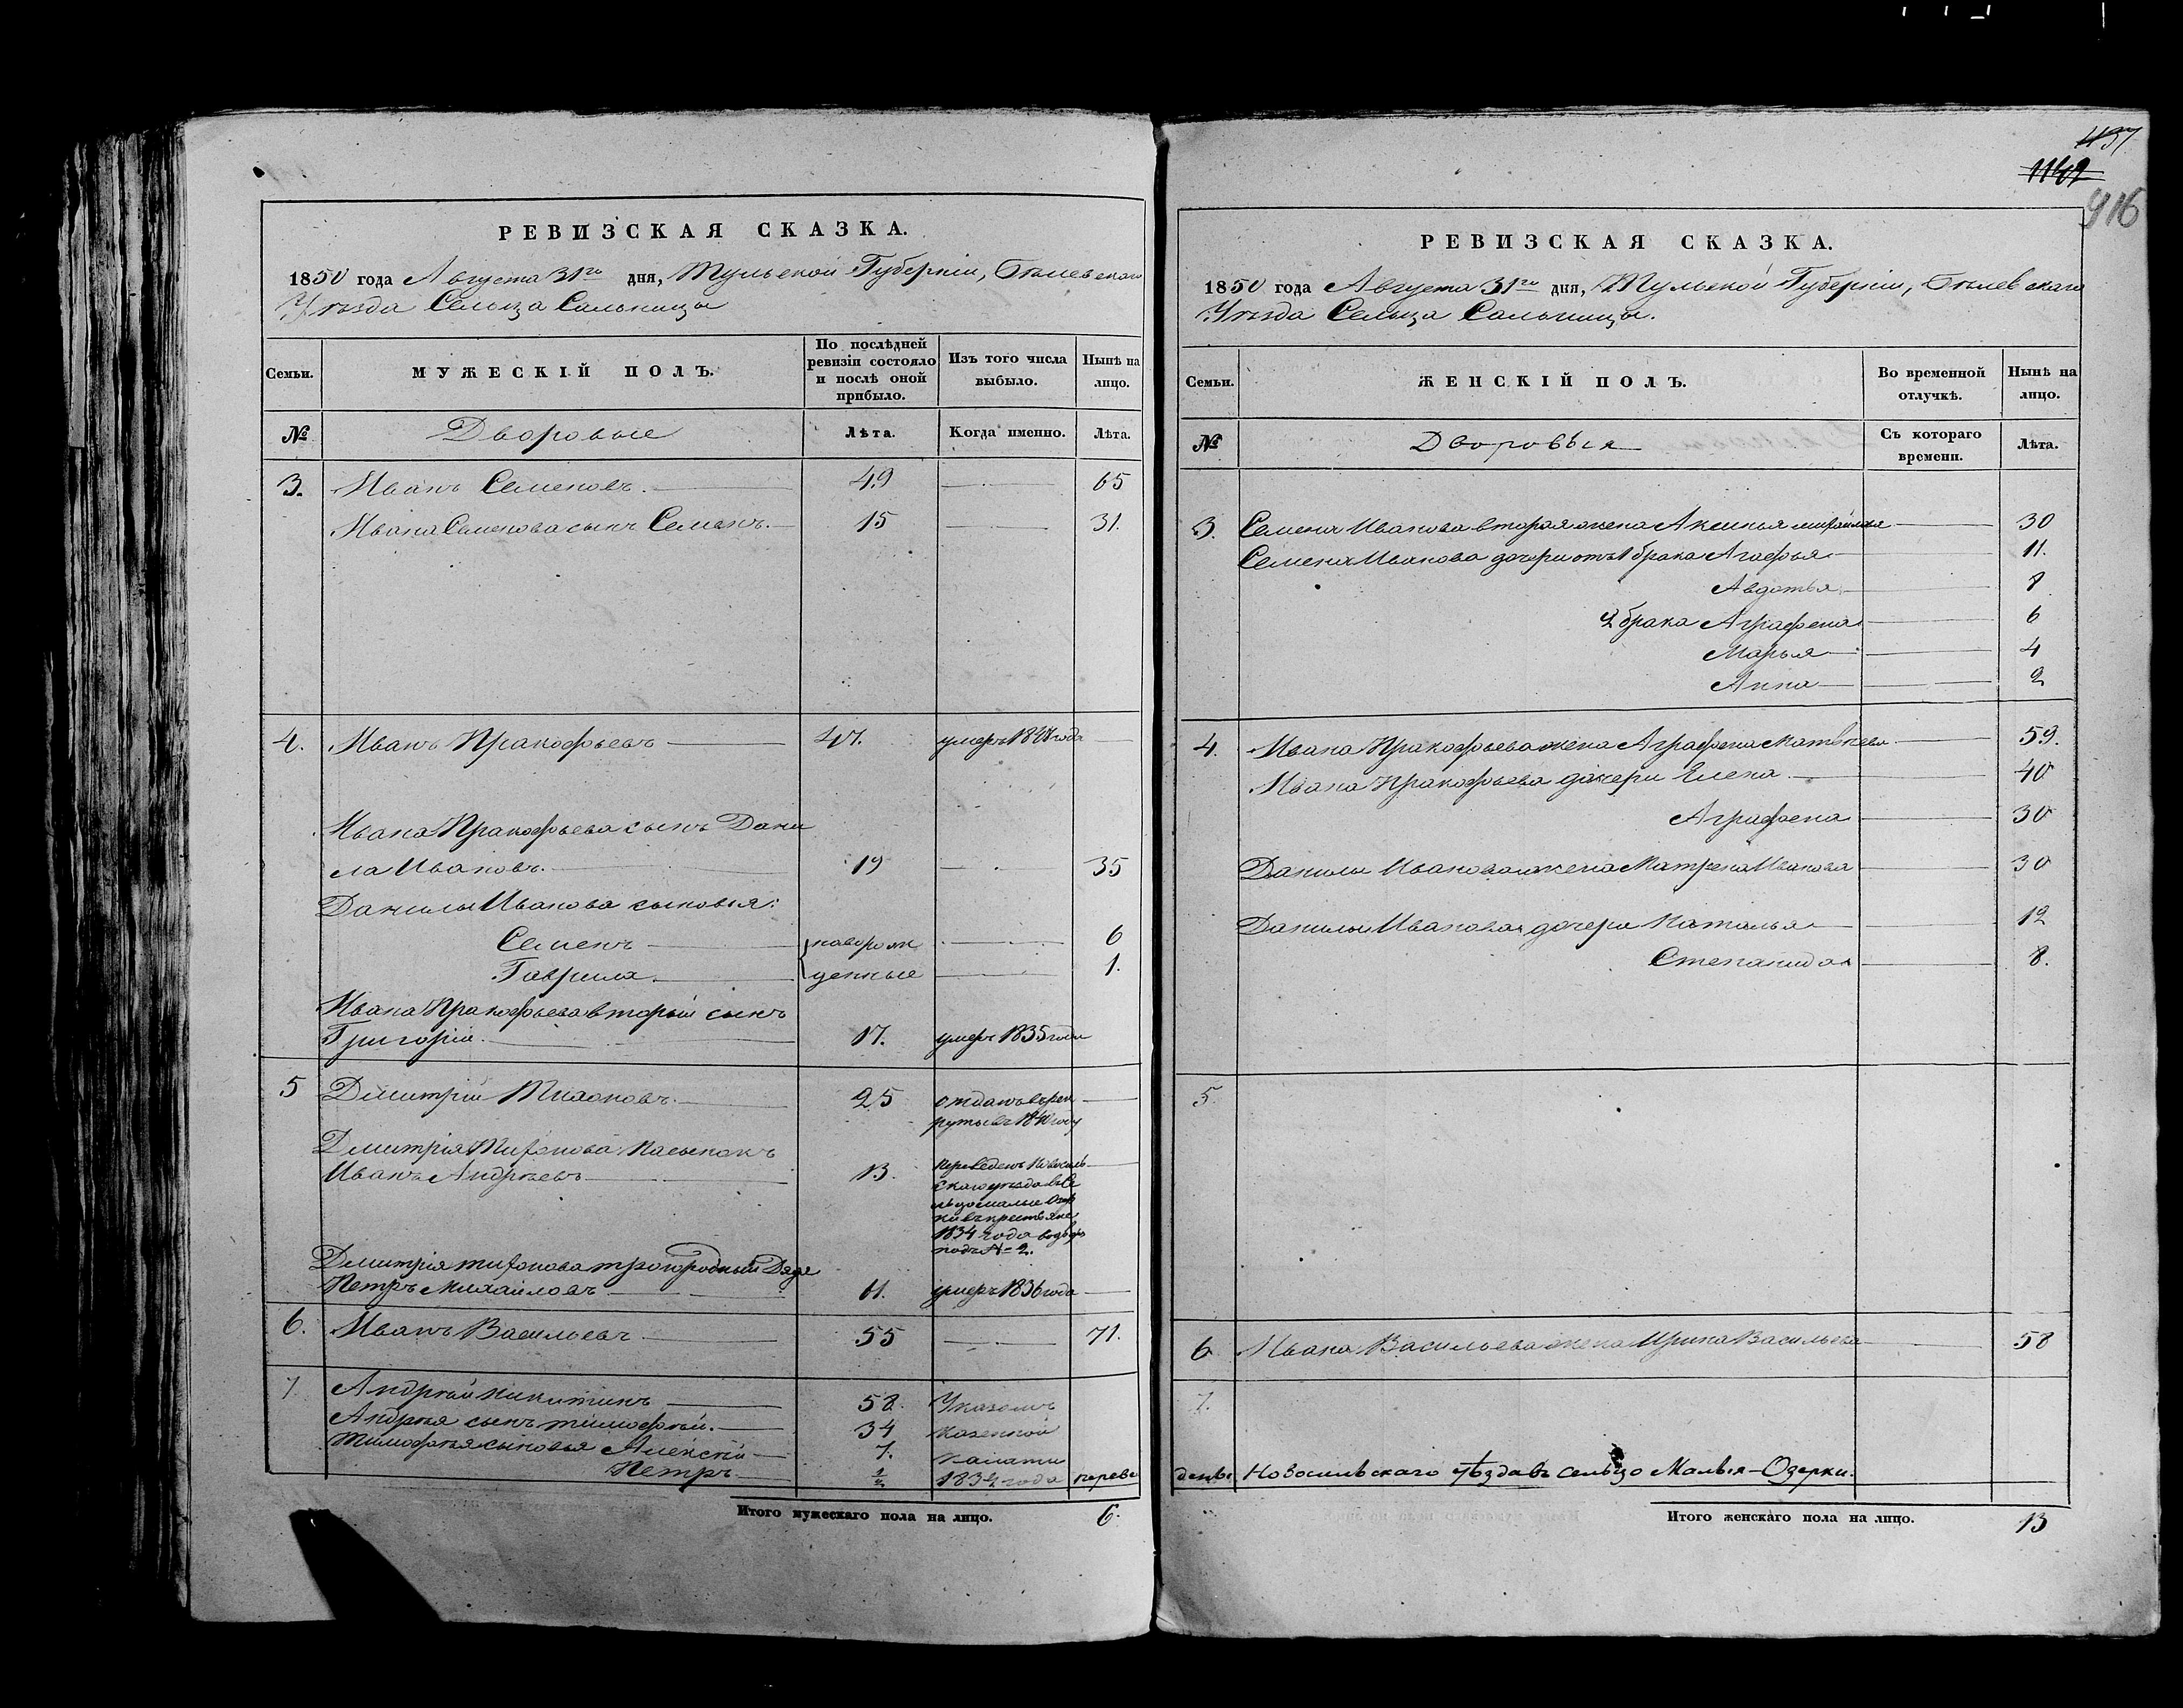 РЕВИЗСКАЯ СКАЗКА.
1850 года Августа 31го дня, Тульской Губерніи, Бѣлевскаго
Уѣзда Сельца Сальницы
Семьи.
МУЖЕСКІЙ ПОЛЪ.
По послѣдней
ревизіи состояло
и послѣ оной
прибыло.
Изъ того числа
выбыло.
Нынѣ на
лицо.
№
Дворовые
Лѣта.
Когда именно.
Лѣта.
3. Иванъ Семеновъ. 49 65
Ивана Семенова сынъ Семенъ. 15 31.
4. Иванъ Пракофьевъ 47. умеръ года
Ивана Пракофьева сынъ Дани
ла Ивановъ. 19 35
Данилы Иванова сыновья:
Семенъ новорож 6
Гаврила денные 1.
Ивана Пракофьева вторый сынъ
Григорій. 17. умеръ 1835 года
5 Димитрій Тихоновъ. 25 отданъ въ рек
руты въ 1840 году
Димитрія Тихонова пасынокъ
Иванъ Андреевъ 13. переведенъ Новосиль
скаго уезда въ Се
льцо малые Озер
ки въ крестьяне
1834 года
подъ № 2.
Димитрія Тихонова троюродный Дядя
Петръ Михаиловъ 11. умеръ 1836 года
6. Иванъ Васильевъ 55 71.
7. Андрей Никитинъ 58. Указомъ
Андрея сынъ Тимофей. 34 казенной
Тимофея сыновья Алексей 7. палаты
Петръ 1/2 1834 года переве
Итого мужескаго пола на лицо. 6.
1137
1149
916
РЕВИЗСКАЯ СКАЗКА.
1850 года Августа 31го дня, Тульской Губерніи, Бѣлевскаго
Уѣзда Сельца Сальницы.
Семьи.
ЖЕНСКІЙ ПОЛЪ.
Во временной
отлучкѣ.
Нынѣ на
лицо.
№
Дворовыя
Съ котораго
времени.
Лѣта.
3. Семена Иванова вторая жена Аксинья 30
Семена Иванова дочери отъ 1 брака Агафья 11.
Авдотья 8
2 брака Аграфена 6
Марья 4
Анна 2
4. Ивана Пракофьева жена Аграфена Матвеева 59.
Ивана Пракофьева дочери Елена 40
Аграфена 30
Данилы Иванова жена Матрена Иванова 30
Данилы Иванова дочери Наталья 12
Степанида 8.
5
6 Ивана Васильева жена Ирина Васильева 58
7.
дены Новосильскаго уѣзда въ сельцо Малыя-Озерки.
Итого женскаго пола на лицо. 13